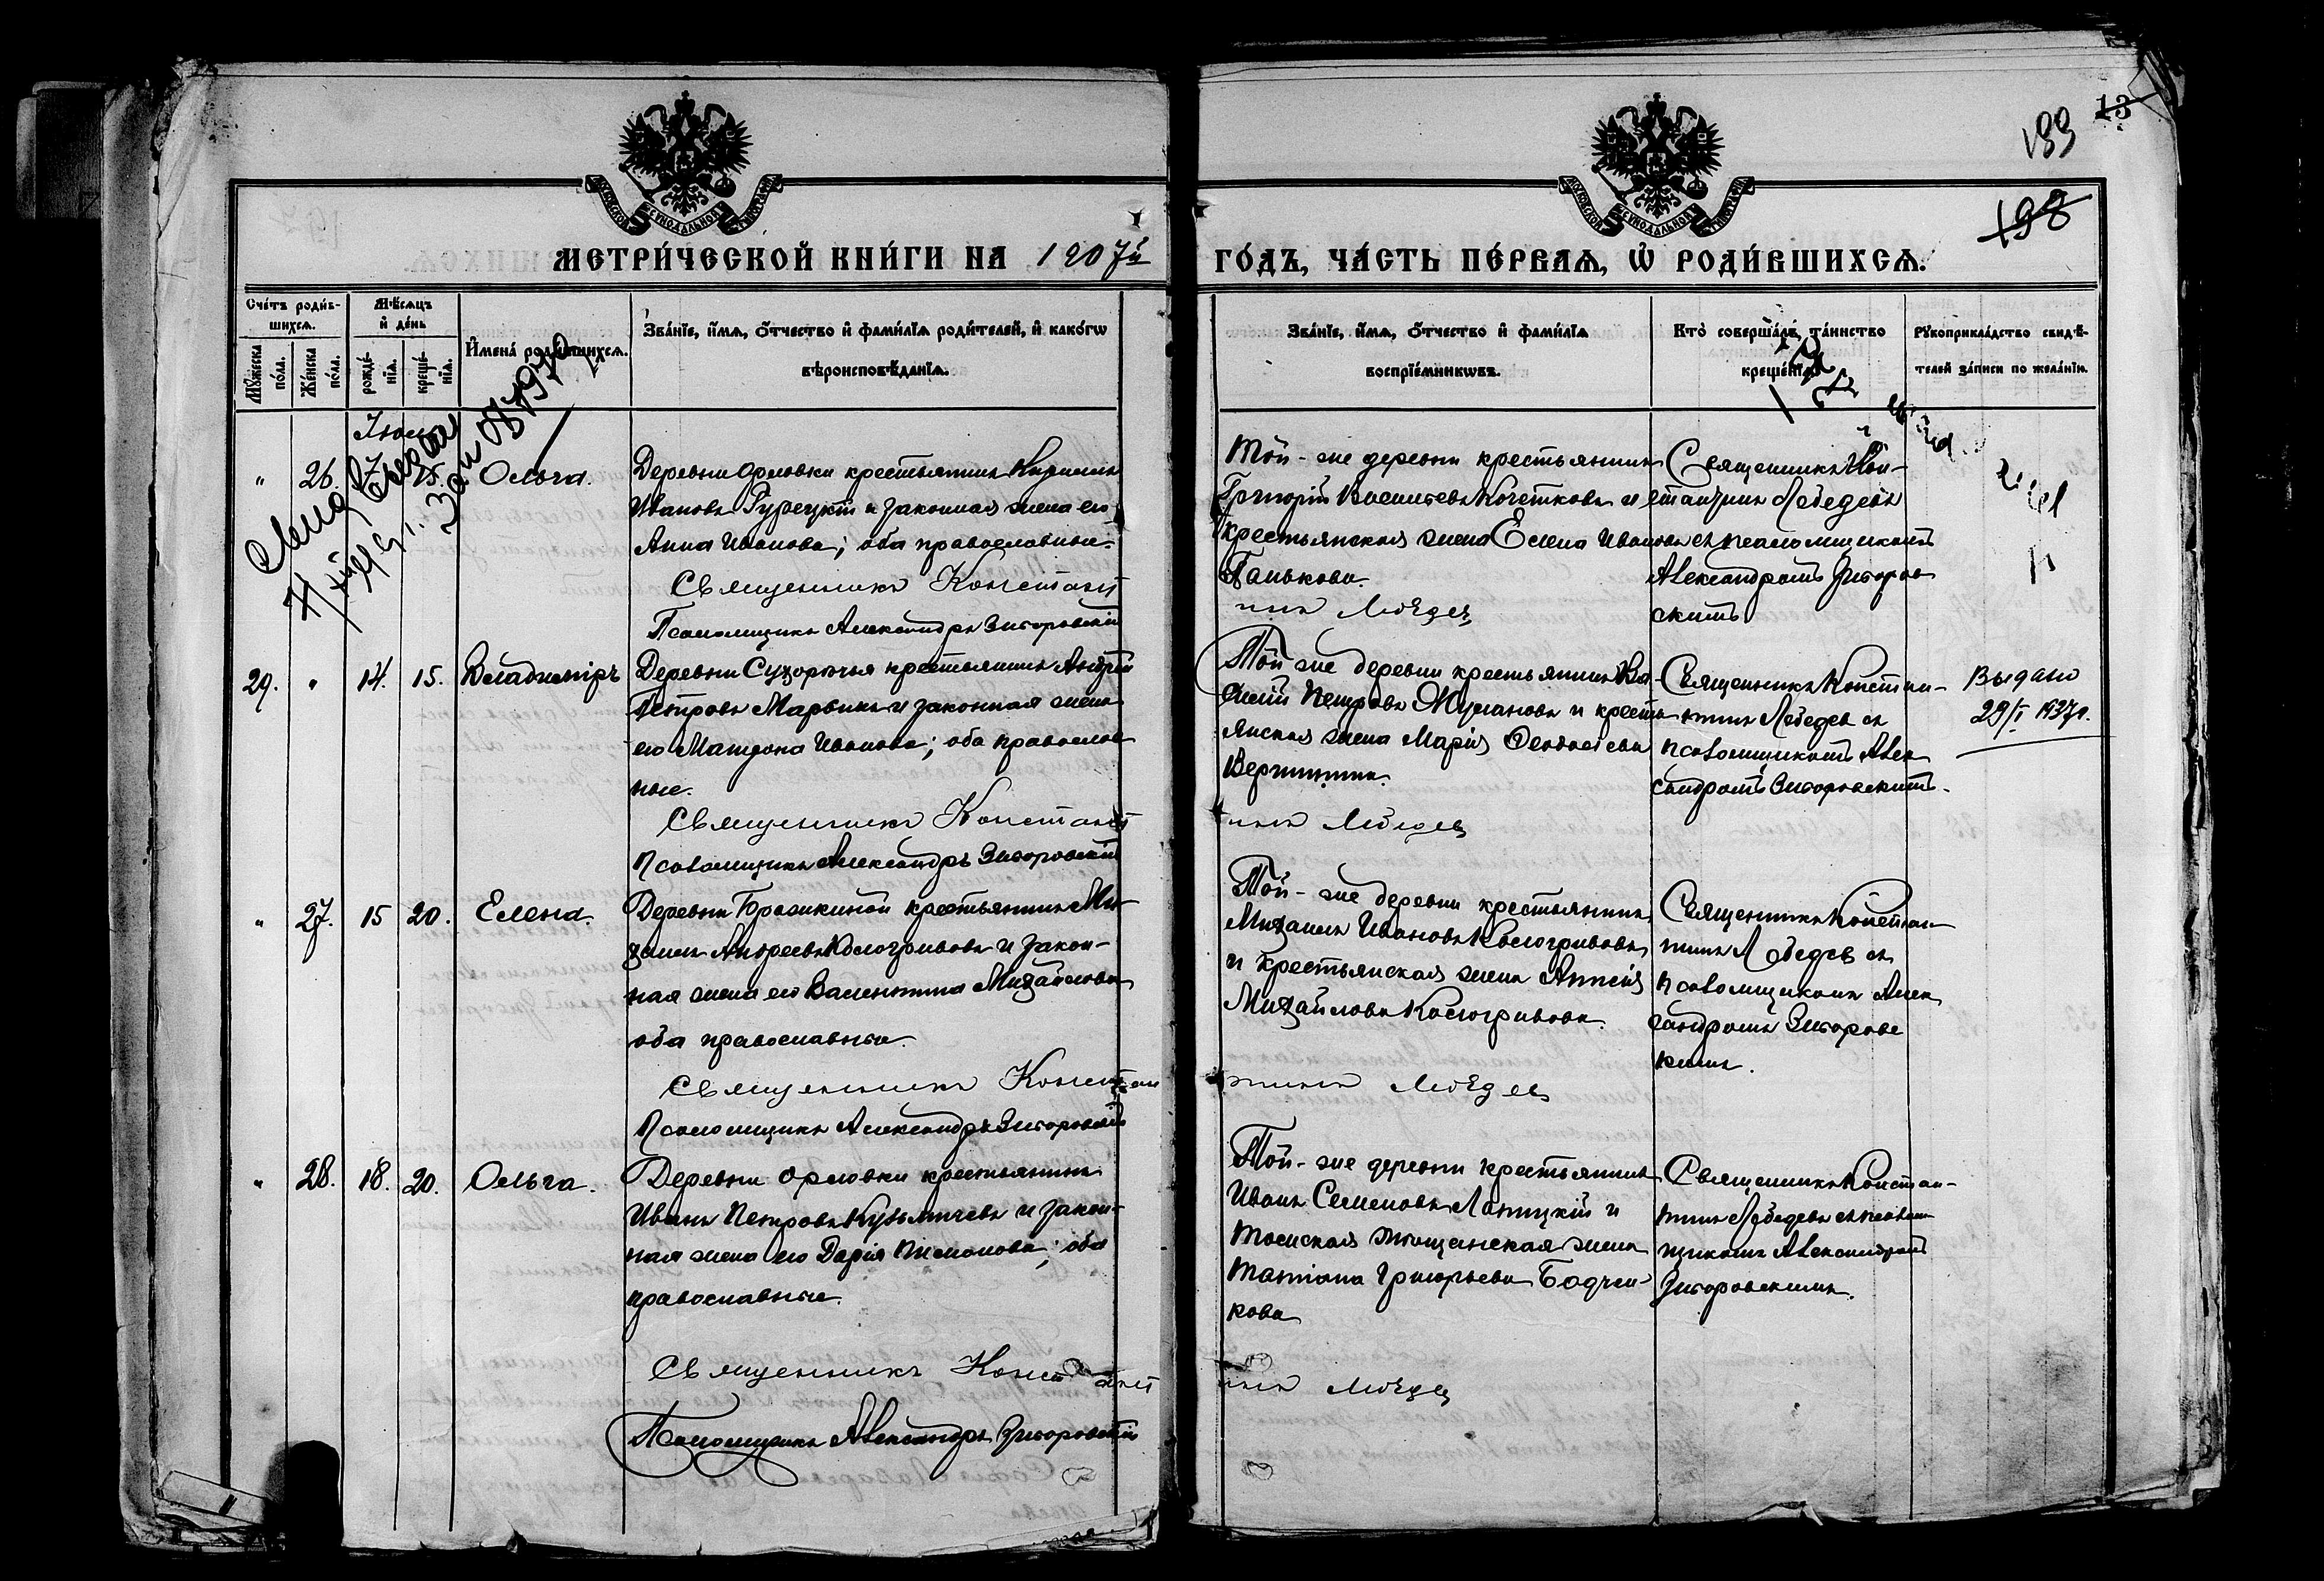 13
199
198
МОСКОВСКОЙ СѴНОДАЛЬНОЙ ТИПОГРАФІИ
МОСКОВСКОЙ СѴНОДАЛЬНОЙ ТИПОГРАФІИ
МЕТРИ́ЧЕСКОЙ КНИ́ГИ НА 1907й
ГО́ДЪ, ЧА́СТЬ ПЕ́РВАѦ, Ѡ҆ РОДИ́ВШИХСѦ.
Сче́тъ роди́вшихсѧ.
Мѣ́сѧцъ и҆ де́нь
Мꙋ́жеска по́ла.
Же́нска по́ла.
рожде́нїѧ.
креще́нїѧ.
И҆мена̀ роди́вшихсѧ.
Зва́нїе, и҆́мѧ, ѻ҆́тчество и҆ фами́лїѧ роди́телей, и҆ како́гѡ
вѣроисповѣ́данїѧ.
Зва́нїе, и҆́мѧ, ѻ҆́тчество и҆ фами́лїѧ
воспрїе́мникѡвъ.
Кто̀ соверша́лъ та́инство
креще́нїѧ.
Рꙋкоприкла́дство свидѣ́-
телей за́писи по жела́нїю.
" 26. Ольга.
Деревни Орловки крестьянинъ Кириллъ
Ивановъ Гурецкій и законная жена его
Анна Иванова; оба православные.
Священникъ Констант
Псаломщикъ Александръ Зигоровскій
Той-же деревни крестьянинъ
Григорій Васильевъ Кочетковъ и
крестьянская жена Елена Иванова
Панькова.
инъ Лебедев
Священникъ Кон-
стантинъ Лебедевъ
съ псаломщикомъ
Александромъ Зигоров
скимъ
29. " 14. 15. Владимиръ
Деревни Сухоречья крестьянинъ Андрей
Петровъ Марьинъ и законная жена
его Матрона Иванова; оба православ
ные.
Священникъ Констант
Псаломщикъ Александръ Зигоровскій
Той же деревни крестьянинъ
Петровъ и кресть
янская жена Марія Феодосіева
инъ Лебедев
Священникъ Констан-
тинъ Лебедев съ
псаломщикомъ Алек
сандромъ Зигоровскимъ.
Выдано
29/I 1937г.
" 27. 15 20. Елена.
Деревни крестьянинъ Ми-
хаилъ Андреевъ Кологривовъ и закон-
ная жена его Валентина Михайлова
оба православные.
Священникъ Констан
Псаломщикъ Александръ Зигоровскій
Той-же деревни крестьянинъ
Михаилъ Ивановъ Кологривовъ
и крестьянская жена
Михайлова Кологривова.
тинъ Лебедев
Священникъ Констан
тинъ Лебедев съ
псаломщикомъ Алек
сандромъ Зигоровс
кимъ.
" 28. 18. 20. Ольга.
Деревни Орловки крестьянинъ
Иванъ Петровъ Кузьмичевъ и закон-
ная жена его Дарія Пименова; оба
православные.
Священникъ Констант
Псаломщикъ Александръ Зигоровскій
Той-же деревни крестьянинъ
Иванъ Семеновъ Лапицкій и
Томская мѣщанская жена
Татіана Григорьева Бодчен-
кова
инъ Лебедев
Священникъ Констан-
тинъ Лебедевъ съ псалом
щикомъ Александромъ
Зигоровскимъ.